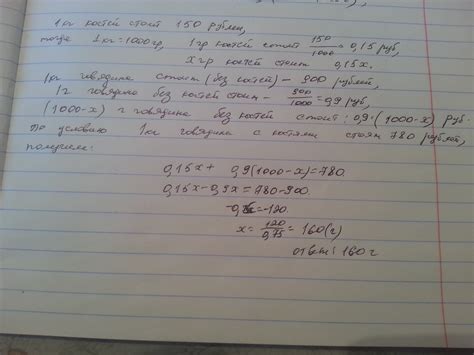 1 кг костей стоит 150 рублей,
тогда 1 кг = 1000 гр, 1 гр костей стоит 150/1000 = 0,15 руб,
x гр костей стоит 0,15x.
1 кг говядина стоит (без костей) - 900 рублей,
1 г говядина без костей стоит - 900/1000 = 0,9 руб,
(1000-x) г говядина без костей стоит: 0,9·(1000-x) руб.
По условию 1 кг говядина с костями стоит 780 рублей,
получаем:
0,15x + 0,9(1000-x)=780
0,15x-0,9x=780-900
=-120
x = 120/0,75 = 160(г)
ответ: 160 г